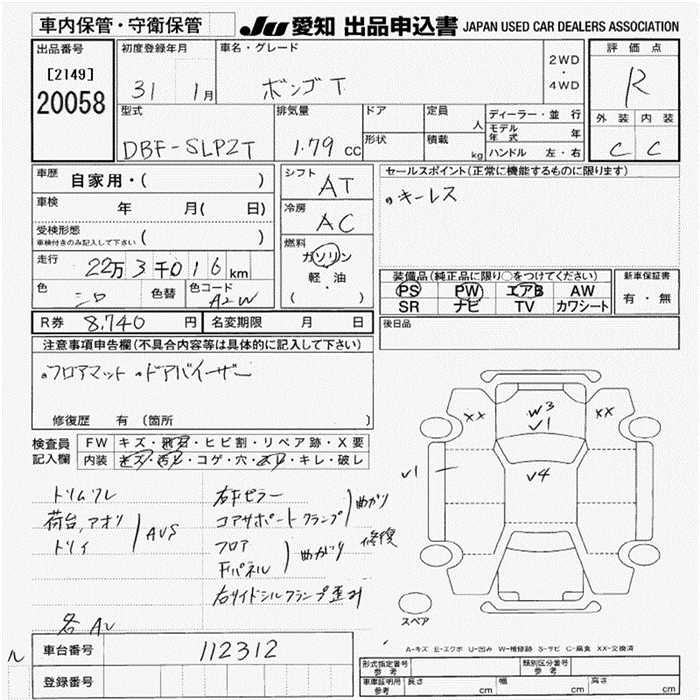 車内保管・守衛保管
JU 愛知 出品申込書 JAPAN USED CAR DEALERS ASSOCIATION
出品番号
[2149]
20058
初度登録年月
31 1月
車名・グレード
ボンゴT
2WD
・
4WD
評価点
R
外装 内装
C C
型式
DBF-SLP2T
排気量
1.79 cc
ドア
形状
定員
人
積載
kg
ディーラー・並 行
モデル年式 年
ハンドル 左・右
車歴
自家用・( )
車検
年 月( 日)
受検形態
車検付きのみ記入して下さい ( )
走行
22万3千016km
色
色替
色コード
A2W
シフト
AT
冷房
AC
燃料
ガソリン
・
軽・油
( )
セールスポイント(正常に機能するものに限ります)
キーレス
装備品(純正品に限り○をつけてください)
PS PW エアB AW
SR ナビ TV カワシート
新車保証書
有・無
後日品
R券 8,740 円
名変期限 月 日
注意事項申告欄(不具合内容等は具体的に記入して下さい)
フロアマット ドアバイザー
修復歴 有 (箇所 )
検査員
記入欄
FW キズ・飛石・ヒビ割・リペア跡・X要
内装 キズ・汚レ・コゲ・穴・スレ・キレ・破レ
トリムワレ
荷台,アオリ
トリイ
AUS
右Fピラー
コアサポートクランプ
曲がり
修復
フロア
Fパネル
曲がり
右サイドシルフランプ歪み
各AU
ル
XX
W3
V1
XX
V1
V4
スペア
A-キズ E-エクボ U-凹み W-補修跡 S-サビ C-腐食 XX-交換済
車台番号 112312
登録番号
形式指定番号
参考
類別区分番号
参考
車庫証明用
参考
長さ cm
幅 cm
高さ cm